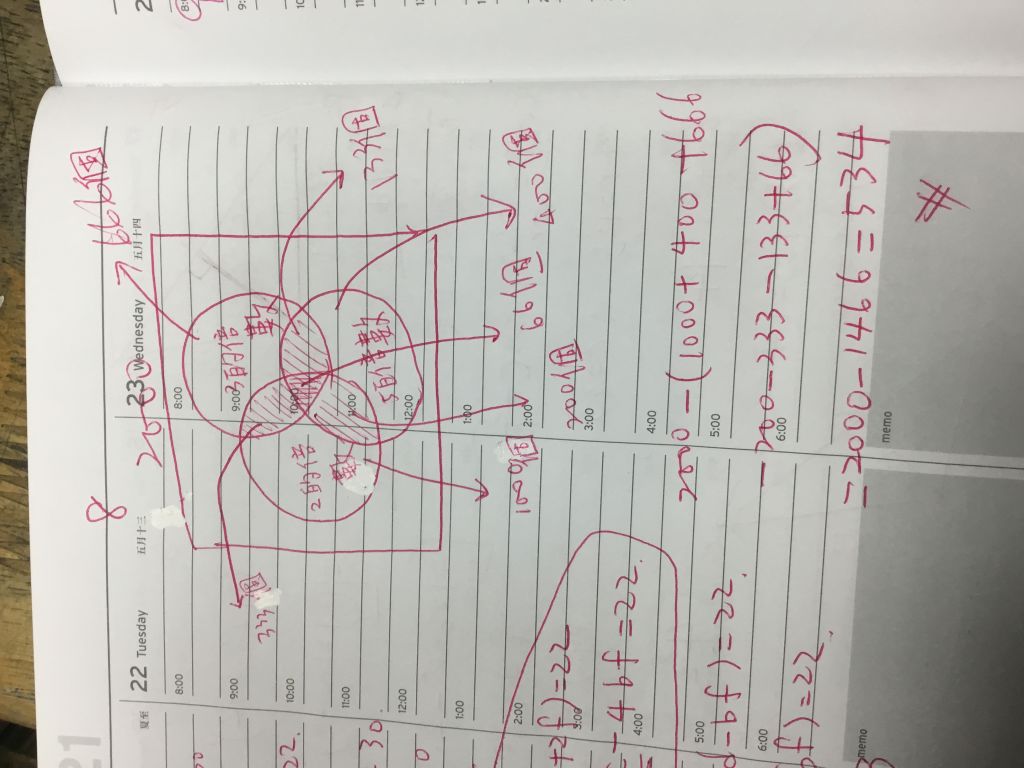 22 Tuesday 五月十三
夏至
8:00
9:00
10:00
11:00
12:00
1:00
2:00
3:00
4:00
5:00
6:00
memo
23 Wednesday 五月十四
8:00
9:00
10:00
11:00
12:00
1:00
2:00
3:00
4:00
5:00
6:00
memo
8
2000
666個
3的倍
數
2的倍
數
5的倍數
333個
133個
1000個
200個
66個
400個
2000-(1000+400+666
-200-333-133+66)
=2000-1466=534
#
+2f)=22
-4bf=22.
d-bf)=22
f)=22.
21
22.
-30.